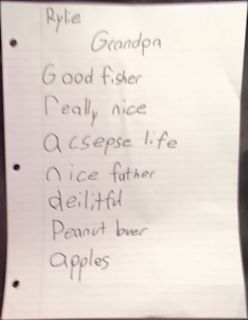 Rylie
Grandpa
Good fisher
really nice
acsepse life
nice father
deilitful
Peanut buer
apples